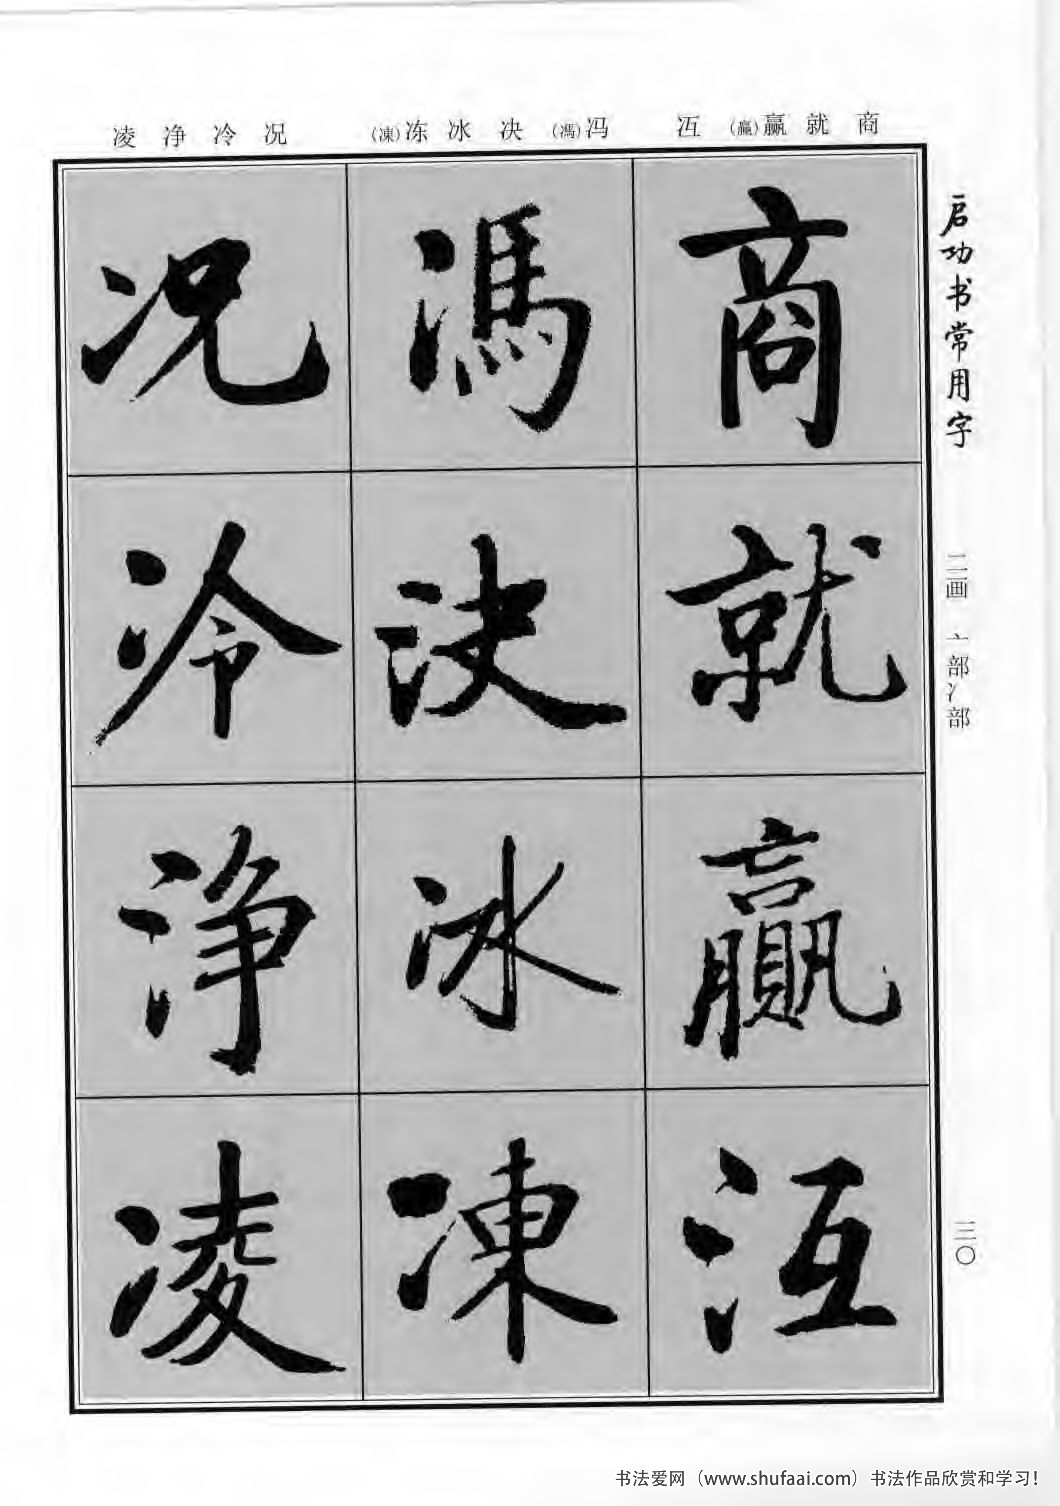 商 就 赢(贏) 冱
冯(馮) 决 冰 冻(凍)
况 冷 净 凌
商就贏沍
馮決冰凍
况冷淨凌
启功书常用字
二画 亠部冫部
三〇
书法爱网（www.shufaai.com）书法作品欣赏和学习!